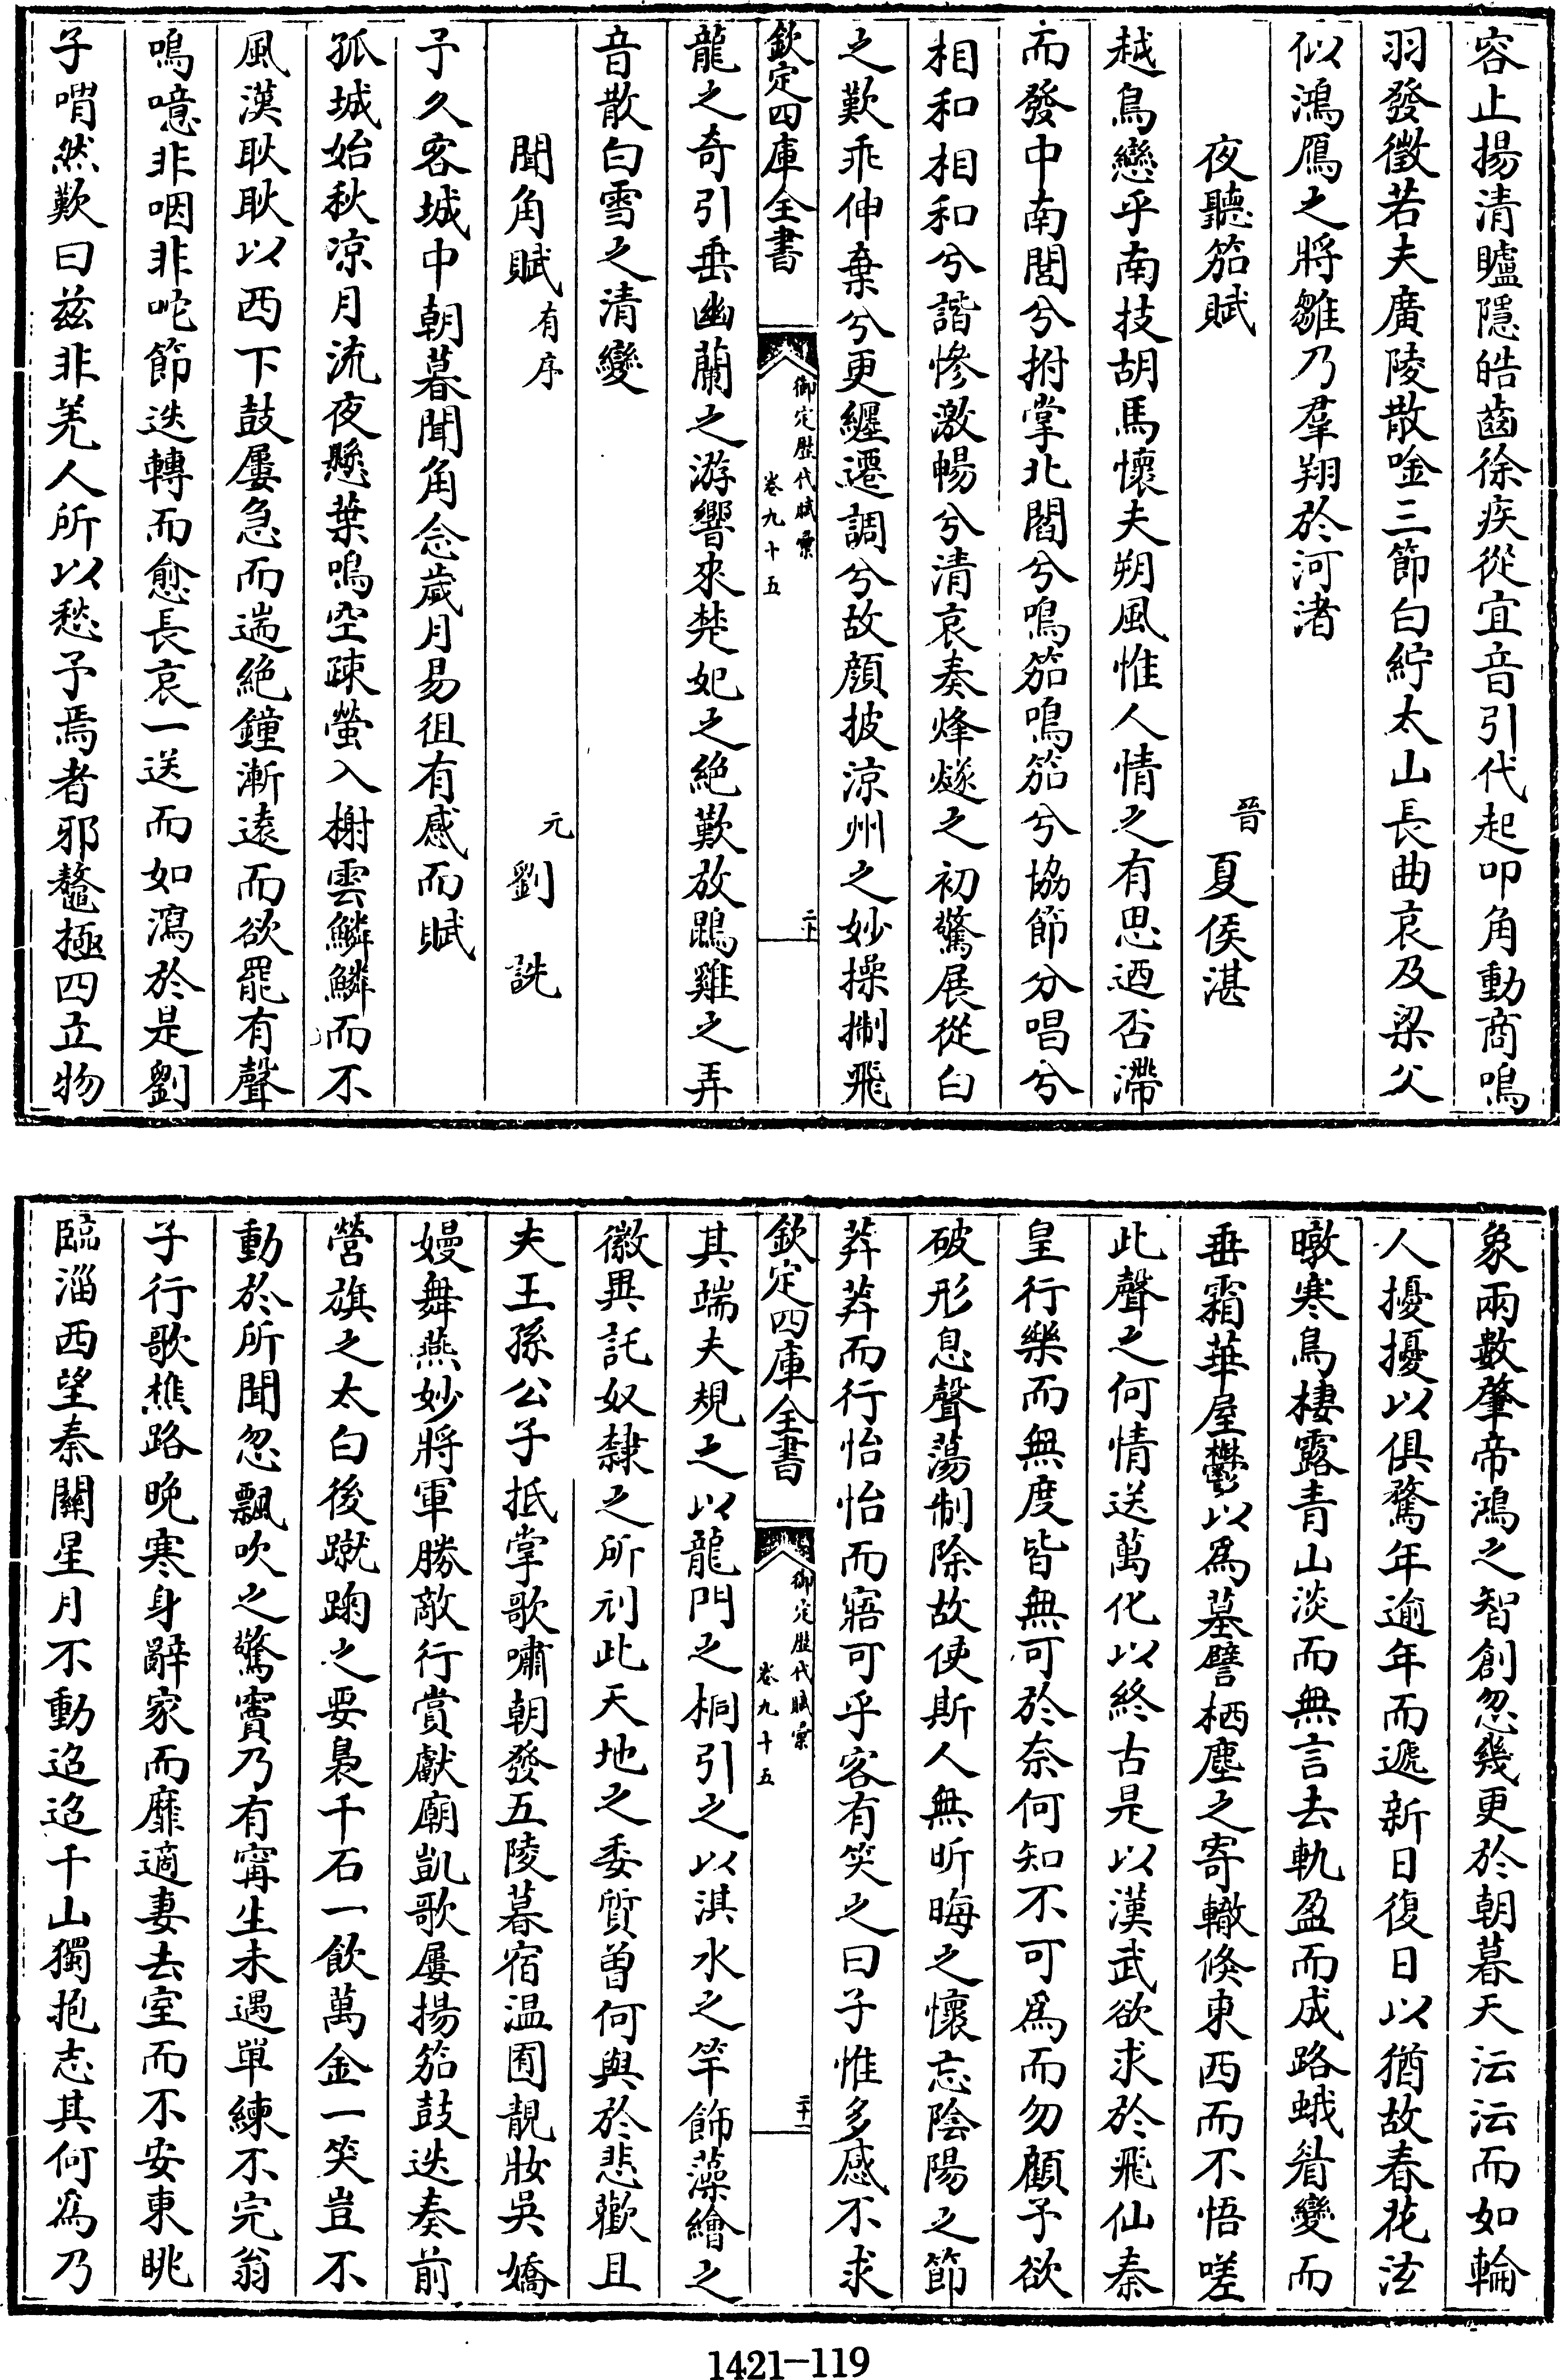 容止揚清矑隱皓齒徐疾從宜音引代起叩角動商鳴
羽發徵若夫廣陵散唫三節白紵太山長曲哀及梁父
似鴻鴈之將雛乃羣翔於河渚
夜聽笳賦 晉 夏侯湛
越鳥戀乎南枝胡馬懷夫朔風惟人情之有思迺否滯
而發中南閭兮拊掌北閻兮鳴笳鳴笳兮協節分唱兮
相和相和兮諧慘激暢兮清哀奏烽燧之初驚展從白
之歎乖伸棄兮更纏遷調兮故顔披凉州之妙操擫飛
欽定四庫全書 御定歷代賦彙 卷九十五 二十
龍之奇引垂幽蘭之游響來楚妃之絶歎放鵾雞之弄
音散白雪之清變
聞角賦 有序 元 劉詵
予久客城中朝暮聞角念歲月易徂有感而賦
孤城始秋凉月流夜懸葉鳴空疎螢入榭雲鱗鱗而不
風漢耿耿以西下鼓屢急而遄絶鐘漸遠而欲罷有聲
鳴噫非咽非咤節迭轉而愈長哀一送而如瀉於是劉
子喟然歎曰茲非羌人所以愁予焉者邪鼇極四立物
象兩數肇帝鴻之智創忽幾更於朝暮天沄沄而如輪
人擾擾以俱騖年逾年而遞新日復日以猶故春花泫
暾寒鳥棲露青山淡而無言去軌盈而成路蛾眉變而
垂霜華屋鬱以爲墓譬栖塵之寄轍倐東西而不悟嗟
此聲之何情送萬化以終古是以漢武欲求於飛仙秦
皇行樂而無度皆無可於奈何知不可爲而勿顧予欲
破形息聲蕩制除故使斯人無昕晦之懷忘陰陽之節
莽莽而行怡怡而寤可乎客有笑之曰子惟多感不求
欽定四庫全書 御定歷代賦彙 卷九十五 二十一
其端夫規之以龍門之桐引之以淇水之竿飾藻繪之
徽異託奴隸之所刓此天地之委質曽何與於悲歡且
夫王孫公子抵掌歌嘯朝發五陵暮宿温囿靚妝吳嬌
嫚舞燕妙將軍勝敵行賞獻廟凱歌屢揚笳鼓迭奏前
營旗之太白後蹴踘之要裊千石一飲萬金一笑豈不
動於所聞忽飄吹之驚竇乃有甯生未遇單練不完翁
子行歌樵路晩寒身辭家而靡適妻去室而不安東眺
臨淄西望秦關星月不動迢迢千山獨抱志其何爲乃
1421-119